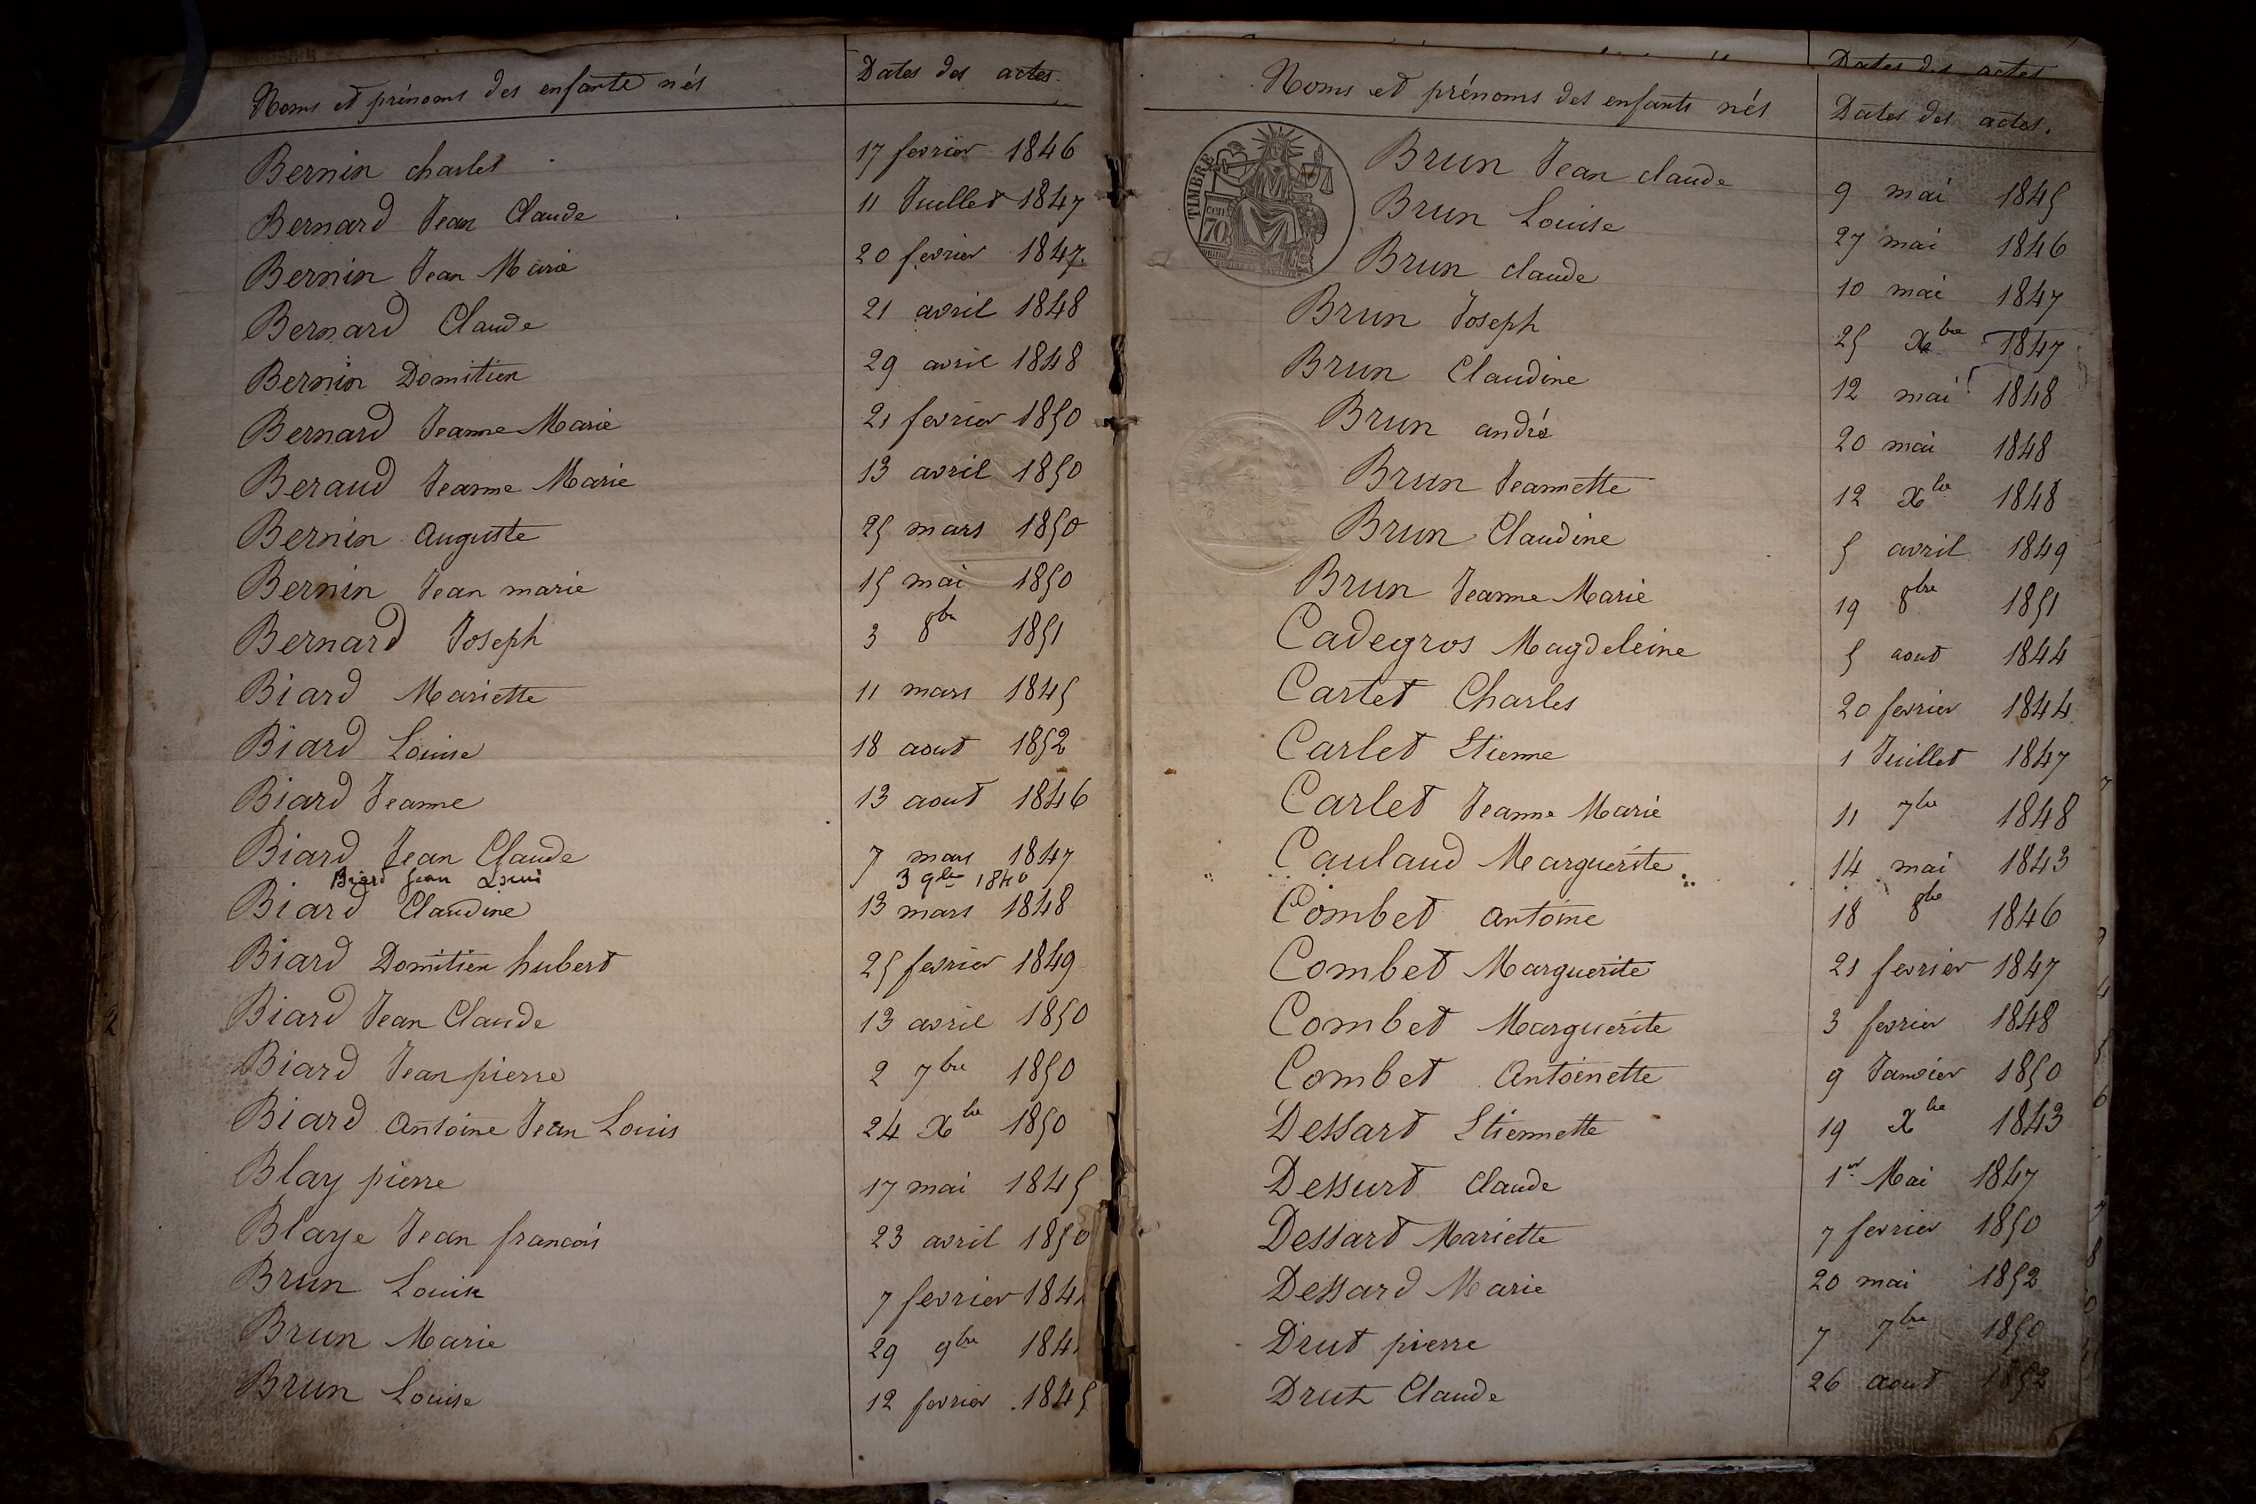 Noms et prénoms des enfants nés Dates des actes.
Bernin charles 17 fevrier 1846
Bernard Jean Claude 11 Juillet 1847
Bernin Jean Marie 20 fevrier 1847.
Bernard Claude 21 avril 1848
Bernin Domitien 29 avril 1848
Bernard Jeanne Marie 21 fevrier 1850
Beraud Jeanne Marie 13 avril 1850
Bernin Auguste 25 mars 1850
Bernin Jean marie 15 mai 1850
Bernard Joseph 3 8bre 1851
Biard Mariette 11 mars 1845
Biard Louise 18 aout 1852
Biard Jeanne 13 aout 1846
Biard Jean Claude 7 mars 1847
Biard Jean Louis 3 9bre 1840
Biard Claudine 13 mars 1848
Biard Domitien hubert 25 fevrier 1849
Biard Jean Claude 13 avril 1850
Biard Jean pierre 2 7bre 1850
Biard Antoine Jean Louis 24 Xbre 1850
Blay pierre 17 mai 1845
Blaye Jean francois 23 avril 1850
Brun Louise 7 fevrier 184
Brun Marie 29 9bre 184
Brun Louise 12 fevrier 1845
Dates des actes
Noms et prénoms des enfants nés Dates des actes.
TIMBRE
70
Brun Jean claude 9 mai 1845
Brun Louise 27 mai 1846
Brun claude 10 mai 1847
Brun Joseph 25 Xbre 1847
Brun Claudine 12 mai 1848
Brun andré 20 mai 1848
Brun Jeannette 12 Xbre 1848
Brun Claudine 5 avril 1849
Brun Jeanne Marie 19 8bre 1851
Cadegros Magdeleine 5 aout 1844
Cartet Charles 20 fevrier 1844
Carlet Etienne 1 Juillet 1847
Carlet Jeanne Marie 11 7bre 1848
Caulaud Marguerite 14 mai 1843
Combet Antoine 18 8bre 1846
Combet Marguerite 21 fevrier 1847
Combet Marguerite 3 fevrier 1848
Combet Antoinette 9 Janvier 1850
Dessart Etiennette 19 Xbre 1843
Dessurt Claude 1er Mai 1847
Dessart Mariette 7 fevrier 1850
Dessard Marie 20 mai 1852
Drut pierre 7 7bre 1850
Drut Claude 26 aout 1852